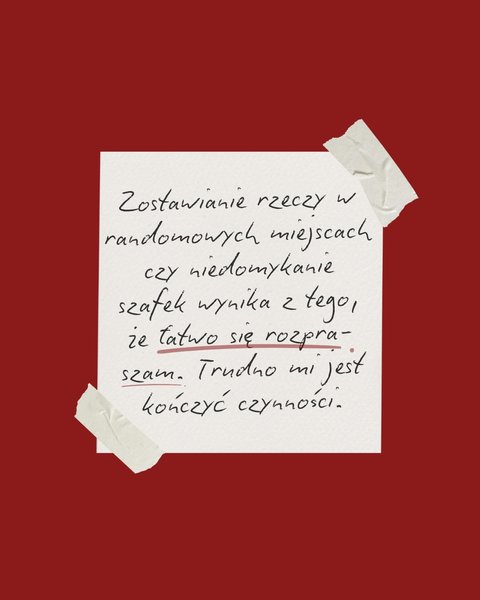 Zostawianie rzeczy w
randomowych miejscach
czy niedomykanie
szafek wynika z tego,
że łatwo się rozpra-
szam. Trudno mi jest
kończyć czynności.